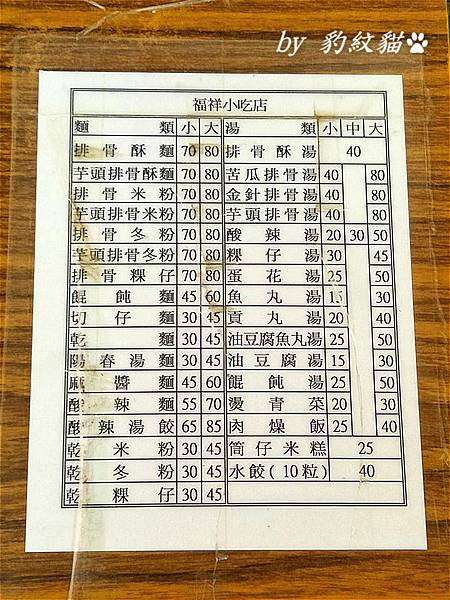 by 豹紋貓
福祥小吃店
麵類 小 大 湯類 小 中 大
排骨酥麵 70 80 排骨酥湯 40
芋頭排骨酥麵 70 80 苦瓜排骨湯 40 80
排骨米粉 70 80 金針排骨湯 40 80
芋頭排骨米粉 70 80 芋頭排骨湯 40 80
排骨冬粉 70 80 酸辣湯 20 30 50
芋頭排骨冬粉 70 80 粿仔湯 30 45
排骨粿仔 70 80 蛋花湯 25 50
餛飩麵 45 60 魚丸湯 15 30
切仔麵 30 45 貢丸湯 20 40
乾麵 30 45 油豆腐魚丸湯 25 50
陽春湯麵 30 45 油豆腐湯 15 30
麻醬麵 45 60 餛飩湯 25 50
酸辣麵 55 70 燙青菜 20 30
酸辣湯餃 65 85 肉燥飯 25 40
乾米粉 30 45 筒仔米糕 25
乾冬粉 30 45 水餃(10粒) 40
乾粿仔 30 45